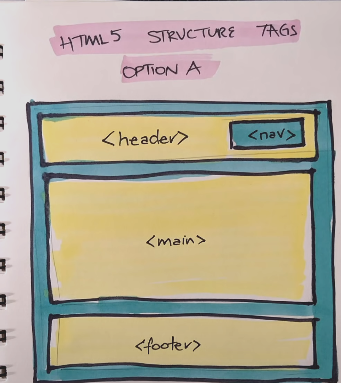 HTML5 STRUCTURE TAGS
OPTION A
<header>
<nav>
<main>
<footer>